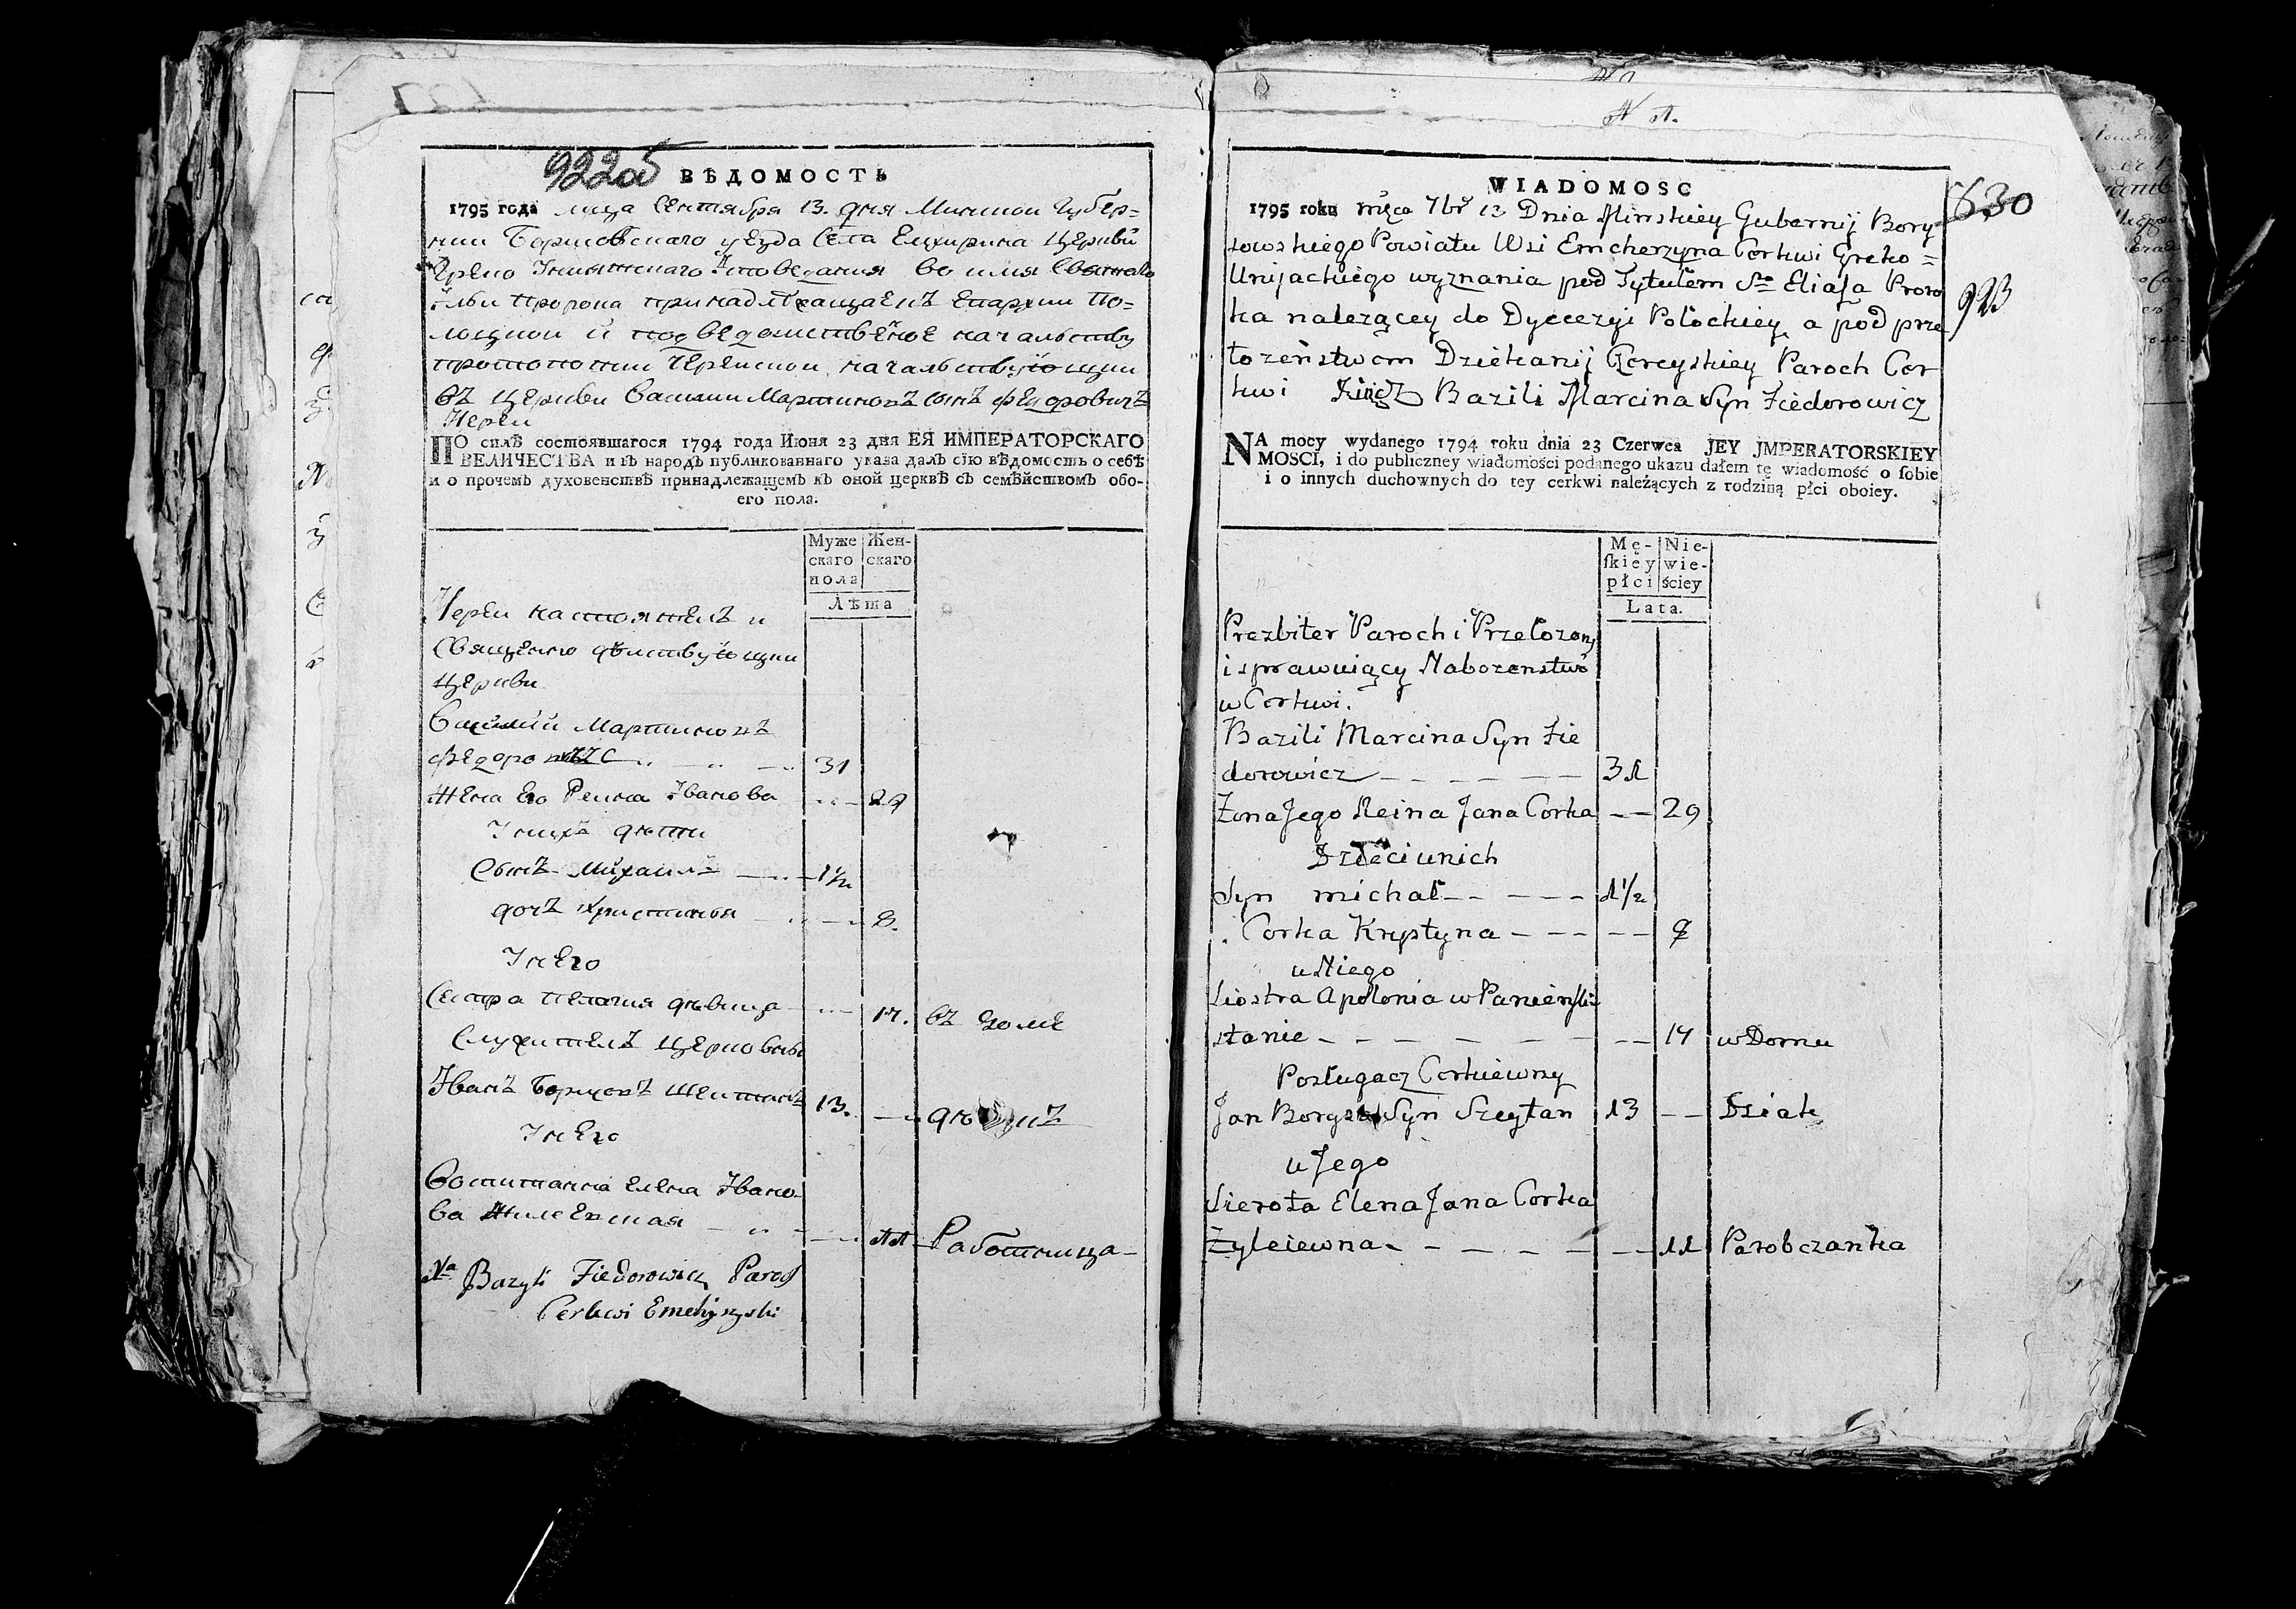 922об
ВѢДОМОСТЬ
1795 года мца Сентября 13. дня Минской Губер=
нии Борисовскаго уезда Села Емхирина церкви
Греко Униятскаго Исповедания во имя Святаго
Ильи пророка принадлежащаемъ Епархии По=
лоцкой и подведомственое начальству
протопопии Черейской началствующии
въ церкви Василии Мартиновъ Сынъ Федоровичъ
Иереи
ПО силѣ состоявшагося 1794 года Июня 23 дня ЕЯ ИМПЕРАТОРСКАГО
ВЕЛИЧЕСТВА и въ народъ публикованнаго указа далъ сїю вѣдомость о себѣ
и о прочемъ духовенствѣ принадлежащемъ къ оной церквѣ съ семѣйствомъ обо-
его пола.
Муже Жен-
скаго скаго
пола
Лѣта
Иереи настоятель и
Священно действующии
церкви
Василий Мартиновъ
31
Жена Его Реина Иванова 29
Сынъ Михаилъ 1 1/2
дочъ Христинья 8.
У него
Сестра девица 17. въ доме
Служитель церковны
Иванъ Борисовъ Шейтанъ 13.
У него
Воспитанна Елена Ивано-
ва 11 Работница
Xa Bazyli Fiedorowicz Paroch
Cerkwi
N 1.
WIADOMOSC
630
1795 roku mięca 7br 13 Dnia Minskiey Gubernij Bory
sowskiego Powiatu Wsi Emcherzyna Cerkwi Greko=
Unijackiego wyznania pod Tytułem So Eliasa Proro
923
ka nalezącey do Dyecezyi Połockiey a pod prze
łozeństwem Dziekanij Czereyskiey Paroch Cer
kwi Xiądz Bazili Marcina Syn Fiedorowicz
NA mocy wydanego 1794 roku dnia 23 Czerwca JEY JMPERATORSKIEY
MOSCI, i do publiczney wiadomości podanego ukazu dałem tę wiadomość o sobie
i o innych duchownych do tey cerkwi należących z rodziną płci oboiey.
Mę- Nie-
skiey wie-
płci ściey
Lata.
Prezbiter Paroch i Przełozony
i sprawuiący Nabozenstwo
w Cerkwi.
Bazili Marcina Syn Fie
dorowicz 31
Zona Jego Reina Jana Corka 29
Dzieci u nich
Syn michał 1 1/2
Corka Krystyna 8
u Niego
Siostra Apolonia w Panieńskim
stanie 17 w Domu
Posługacz Cerkiewny
Jan Borysa Syn Szeytan 13 Dziak
u Jego
Sierota Elena Jana Corka
Zyleiewna 11 Parobczanka